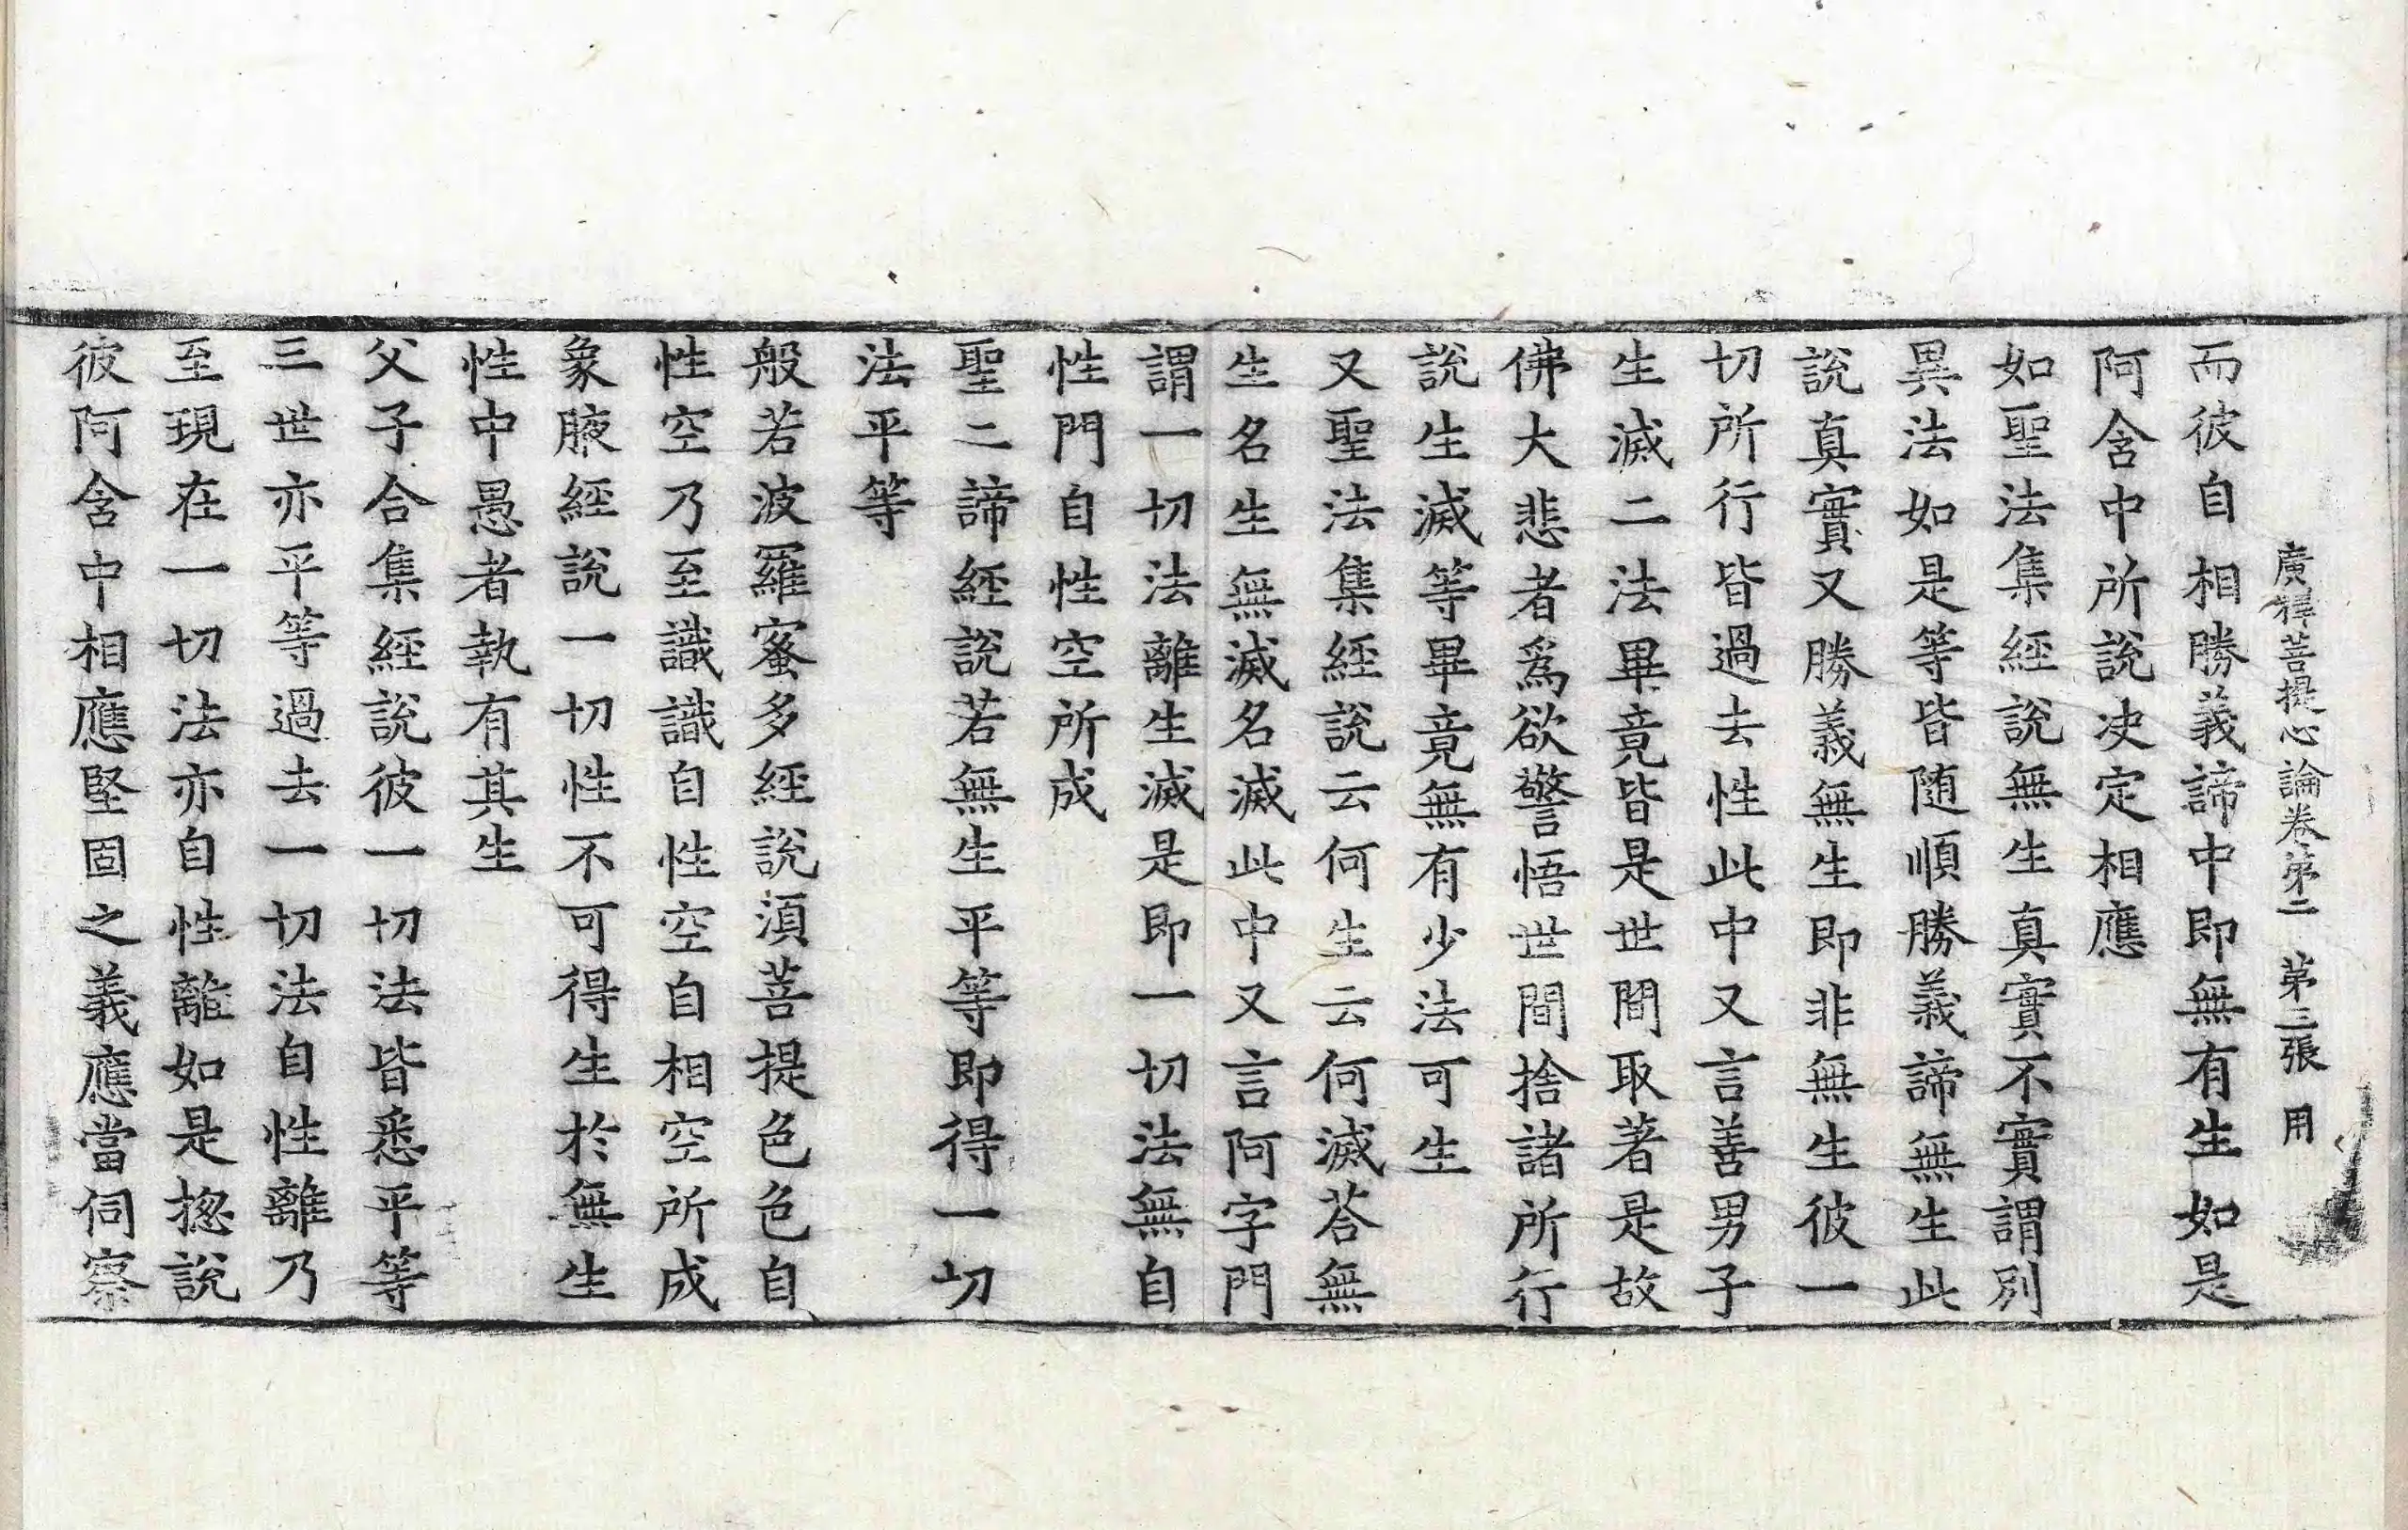 廣釋菩提心論卷第二 第三張 用
而彼自相勝義諦中即無有生如是
阿含中所說决定相應
如聖法集經說無生真實不實謂別
異法如是等皆随順勝義諦無生此
說真實又勝義無生即非無生彼一
切所行皆過去性此中又言善男子
生滅二法畢竟皆是世間取著是故
佛大悲者爲欲警悟世間捨諸所行
說生滅等畢竟無有少法可生
又聖法集經說云何生云何滅荅無
生名生無滅名滅此中又言阿字門
謂一切法離生滅是即一切法無自
性門自性空所成
聖二諦經說若無生平等即得一切
法平等
般若波羅蜜多經說湏菩提色色自
性空乃至識識自性空自相空所成
象腋經說一切性不可得生於無生
性中愚者執有其生
父子合集經說彼一切法皆悉平等
三世亦平等過去一切法自性離乃
至現在一切法亦自性離如是揔說
彼阿含中相應堅固之義應當伺察